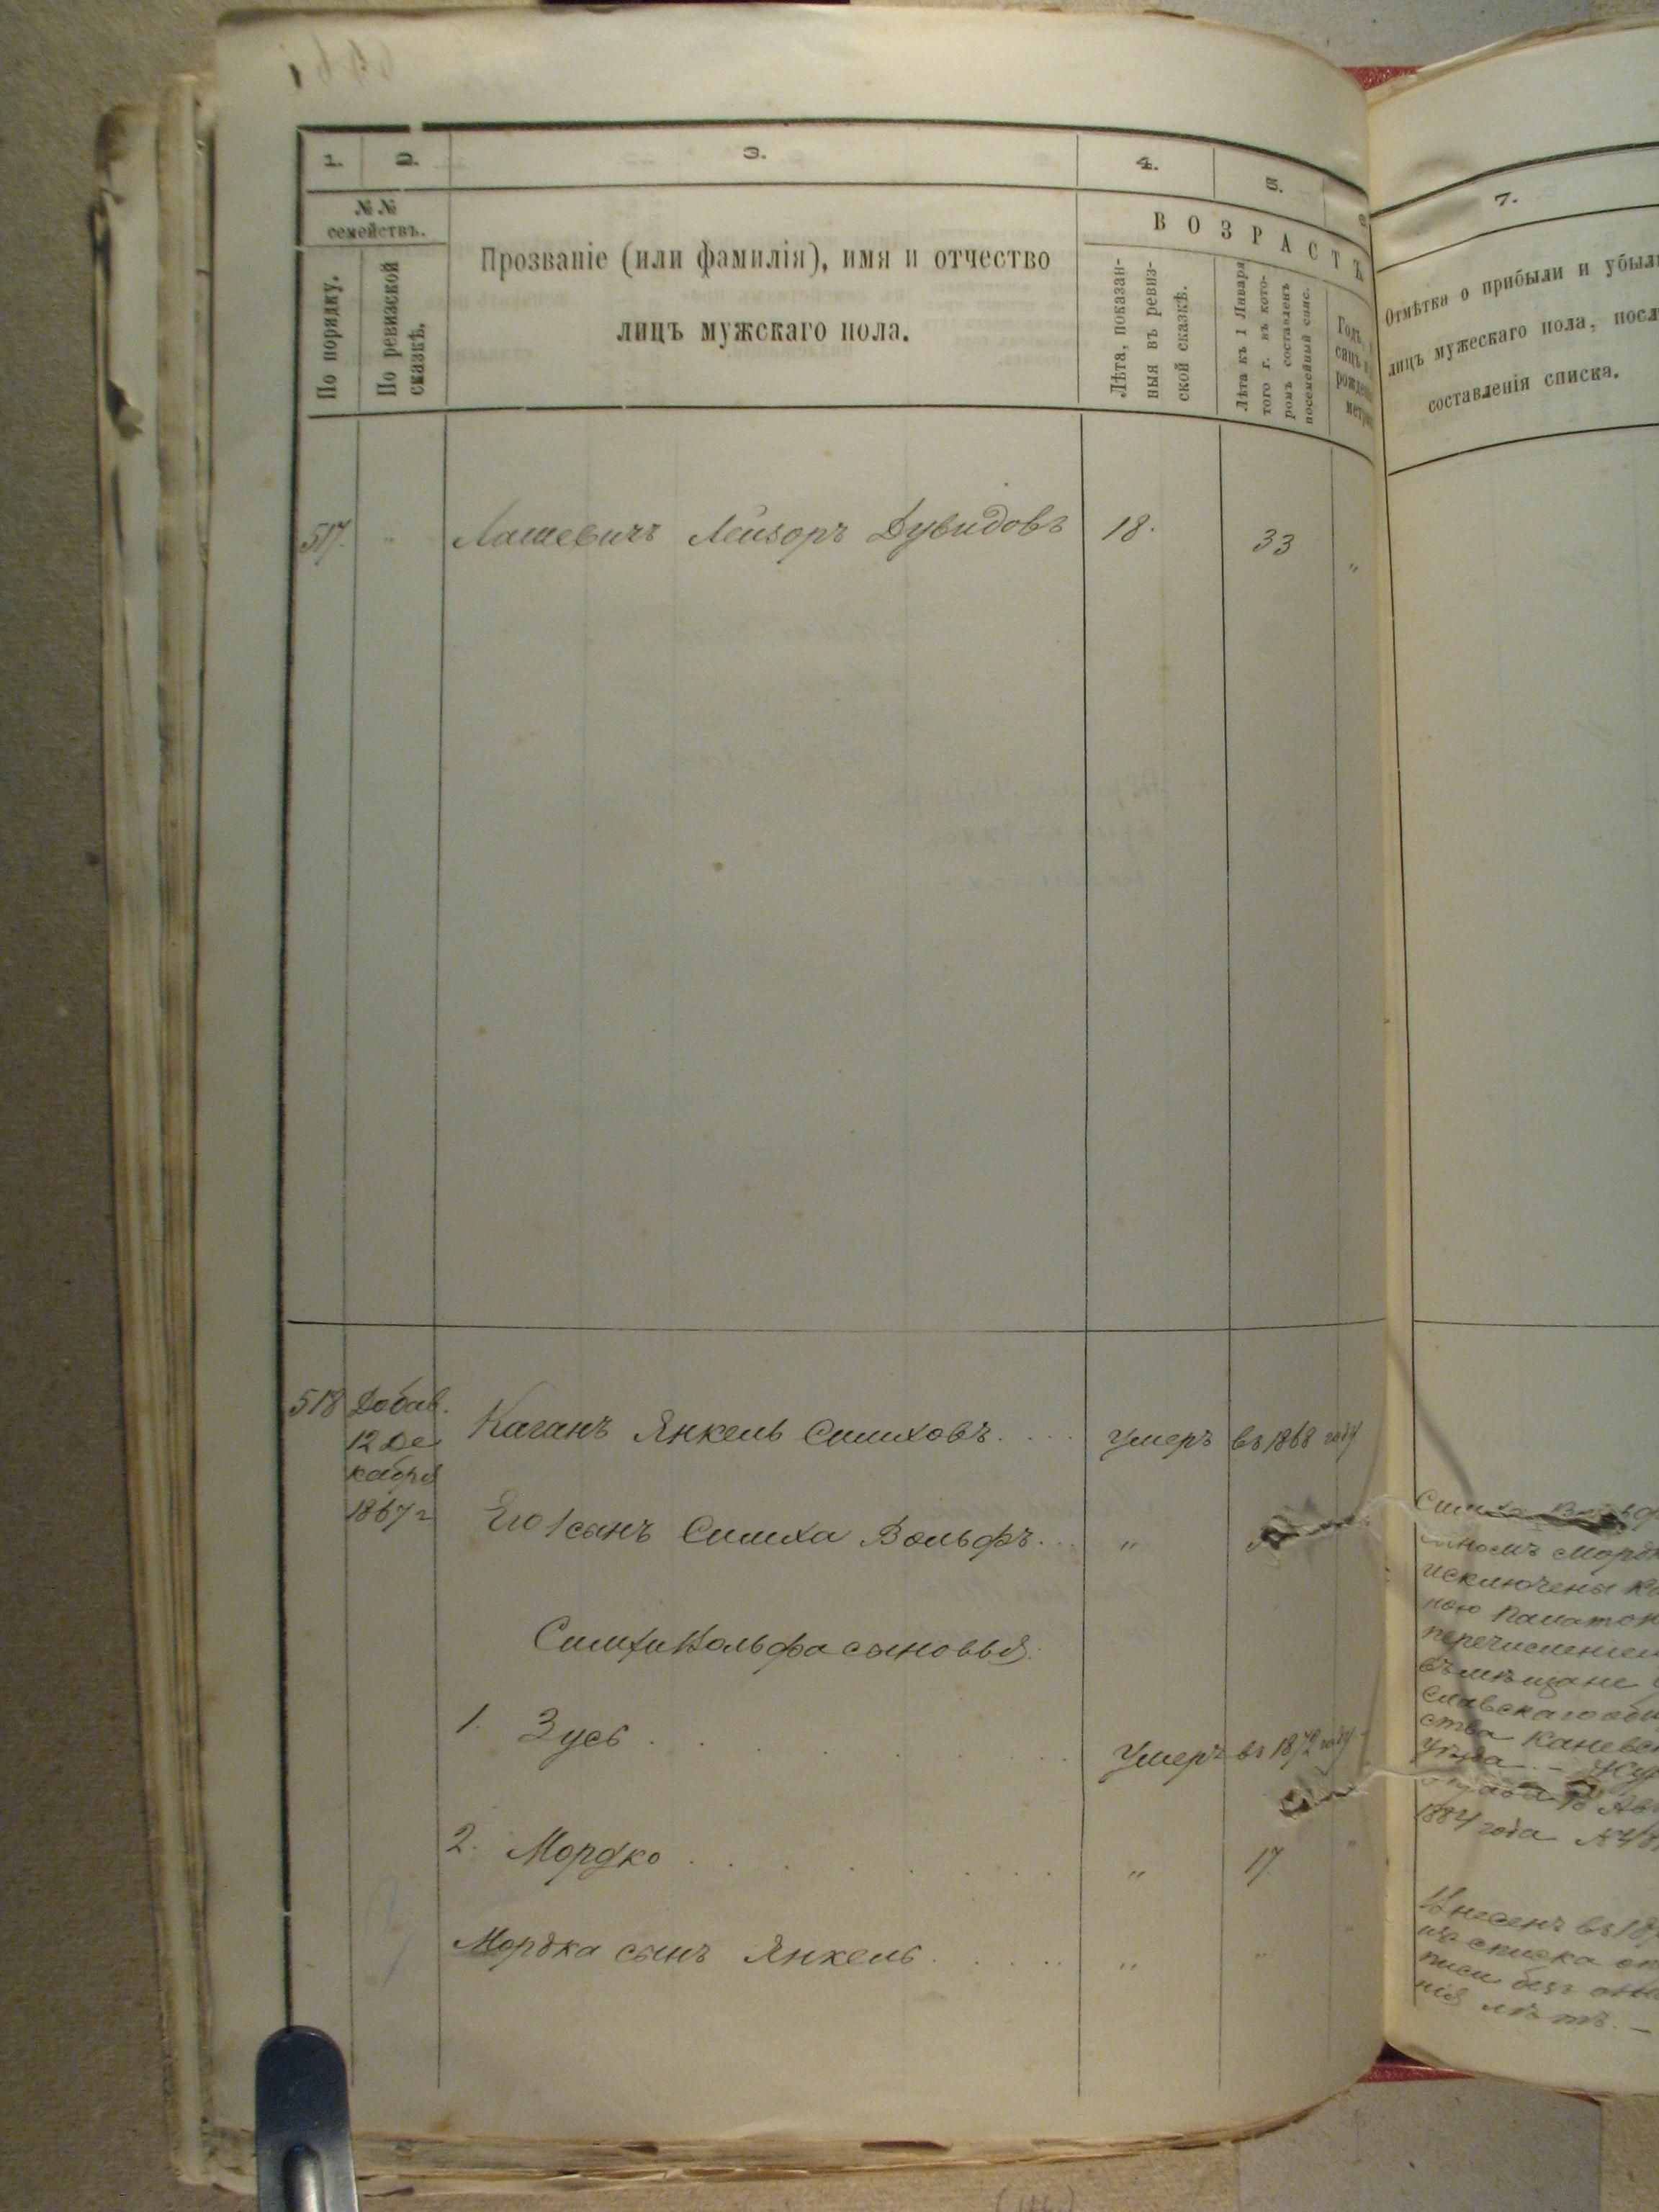 1.
2.
3.
4.
5.
7.
№ №
семействъ.
По порядку.
По ревизской
сказкѣ.
Прозваніе (или фамилія), имя и отчество
лицъ мужскаго пола.
ВОЗРАСТЪ
Лѣта, показан-
ныя въ ревиз-
ской сказкѣ.
Лѣта къ 1 Января
того г. въ кото-
ромъ составленъ
посемейный спис.
Отмѣтка о прибыли и убыли
лицъ мужескаго пола, посл
составленія списка.
517. " Лашевичъ Лейзоръ Дувидовъ 18. 33 "
518 Добав.
12 Де
кабря
1867 г
Каганъ Янкель Симховъ. . . . Умеръ въ 1868 году
Его 1 сынъ Симха Вольфъ. . . "
Симхи Вольфа сыновья:
1. Зусь . . . . . . . Умеръ въ 1872 году
2. Мордко . . . . . . . " 17 "
Мордка сынъ Янкель . . . . . " "
Симха Вольф
сыномъ Мордк
исключены Ка
ною Палатою
перечисленіем
въ мѣщане
славскаго общ
ства Каневск
уѣзда. –
1884 года №
Внесенъ въ 187
изъ списка
писи безъ
нія лѣтъ. –